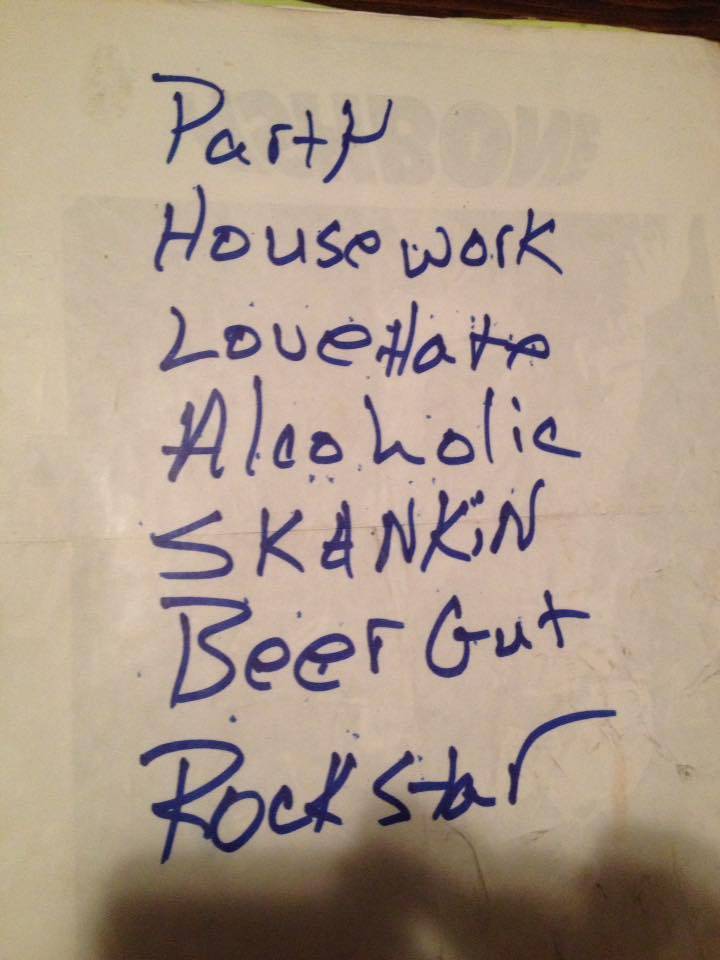 Party
House work
Love Hate
Alcoholic
SKANKiN
Beer Gut
Rock Star